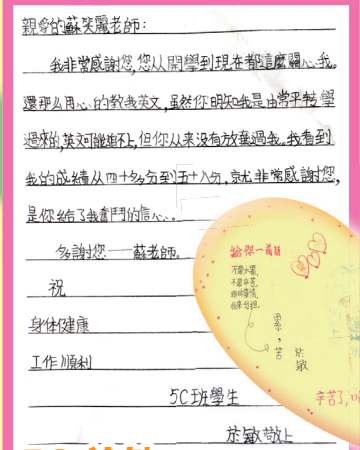 親愛的蘇笑麗老師:
我非常感謝您,您从開學到現在都這麼關心我。
還那么用心的教我英文,虽然你明知我是由常平转學
過來的,英文可能並不上,但你从来没有放棄過我。我看到
我的成績从四十多分到五十八分,就非常感謝您,
是你給了我奮鬥的信心。
多謝您——蘇老師。
祝
身体健康
工作順利
5C班學生
於敏敬上
給你一首詩
累,苦
於敏
辛苦了,